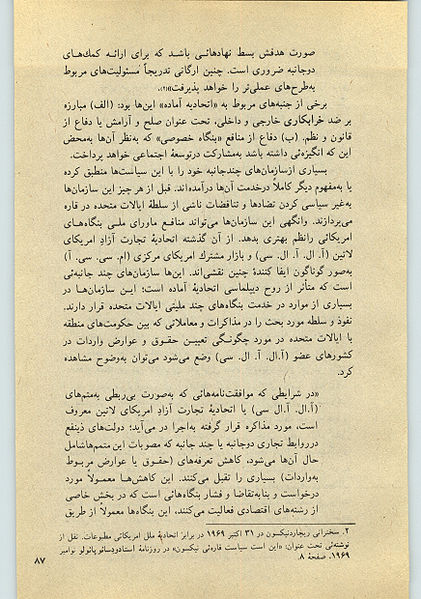 صورت هدفش بسط نهادهائی باشد که برای ارائه کمك‌های
دوجانبه ضروری است. چنین ارگانی تدریجاً مسئولیت‌های مربوط
به‌طرح‌های عملی‌تر را خواهد پذیرفت»(۲).
برخی از جنبه‌های مربوط به «اتحادیه آماده» این‌ها بود: (الف) مبارزه
بر ضد خرابکاری خارجی و داخلی، تحت عنوان صلح و آرامش یا دفاع از
قانون و نظم. (ب) دفاع از منافع «بنگاه خصوصی» که به‌نظر آن‌ها به‌محض
این که انگیزه‌ئی داشته باشد به‌مشارکت درتوسعهٔ اجتماعی خواهد پرداخت.
بسیاری ازسازمان‌های چندجانبه خود را با این سیاست‌ها منطبق کرده
یا به‌مفهوم دیگر کاملاً درخدمت آن‌ها درآمده‌اند. قبل از هر چیز این سازمان‌ها
به‌غیر سیاسی کردن تضادها و تناقضات ناشی از سلطهٔ ایالات متحده در قاره
می‌پردازند. وانگهی این سازمان‌ها می‌تواند منافع ماورای ملی بنگاه‌های
امریکائی رانظم بهتری بدهد. از آن گذشته اتحادیهٔ تجارت آزاد امریکای
لاتین (آ. ال. آ. ال. سی) و بازار مشترك امریکای مرکزی (ام. سی. سی. آ)
به‌صور گوناگون ایفا کنندهٔ چنین نقشی‌اند. این‌ها سازمان‌های چند جانبه‌ئی
است که متأثر از روح دیپلماسی اتحادیهٔ آماده است؛ این سازمان‌ها در
بسیاری از موارد در خدمت بنگاه‌های چند ملیتی ایالات متحده قرار دارند.
نفوذ و سلطه مورد بحث را در مذاکرات و معاملاتی که بین حکومت‌های منطقه
با ایالات متحده در مورد چگونگی تعیین حقوق و عوارض واردات در
کشورهای عضو (آ.ال. آ. ال. سی) وضع می‌شود می‌توان به‌وضوح مشاهده
کرد.
«در شرایطی که موافقت‌نامه‌هائی که به‌صورت بی‌ربطی به‌متم‌های
(آ.ال. آ.ال سی) یا اتحادیهٔ تجارت آزاد امریکای لاتین معروف
است، مورد مذاکره قرار گرفته به‌اجرا در می‌آید؛ دولت‌های ذینفع
درروابط تجاری دوجانبه یا چند جانبه که مصوبات این متمم‌هاشامل
حال آن‌ها می‌شود، کاهش تعرفه‌های (حقوق یا عوارض مربوط
به‌واردات) بسیاری را تقبل می‌کنند. این کاهش‌ها معمولاً مورد
درخواست و بنابه‌تقاضا و فشار بنگاه‌هائی است که در بخش خاصی
از رشته‌های اقتصادی فعالیت می‌کنند، این بنگاه‌ها معمولاً از طریق
۲. سخنرانی ریچاردنیکسون در ۳۱ اکتبر ۱۹۶۹ در برابر اتحادیهٔ ملل امریکائی مطبوعات. نقل از
نوشته‌ئی تحت عنوان: «این است سیاست قاره‌ئی نیکسون» در روزنامهٔ استادودسائوپائولو نوامبر
۱۹۶۹. صفحهٔ ۸.
۸۷